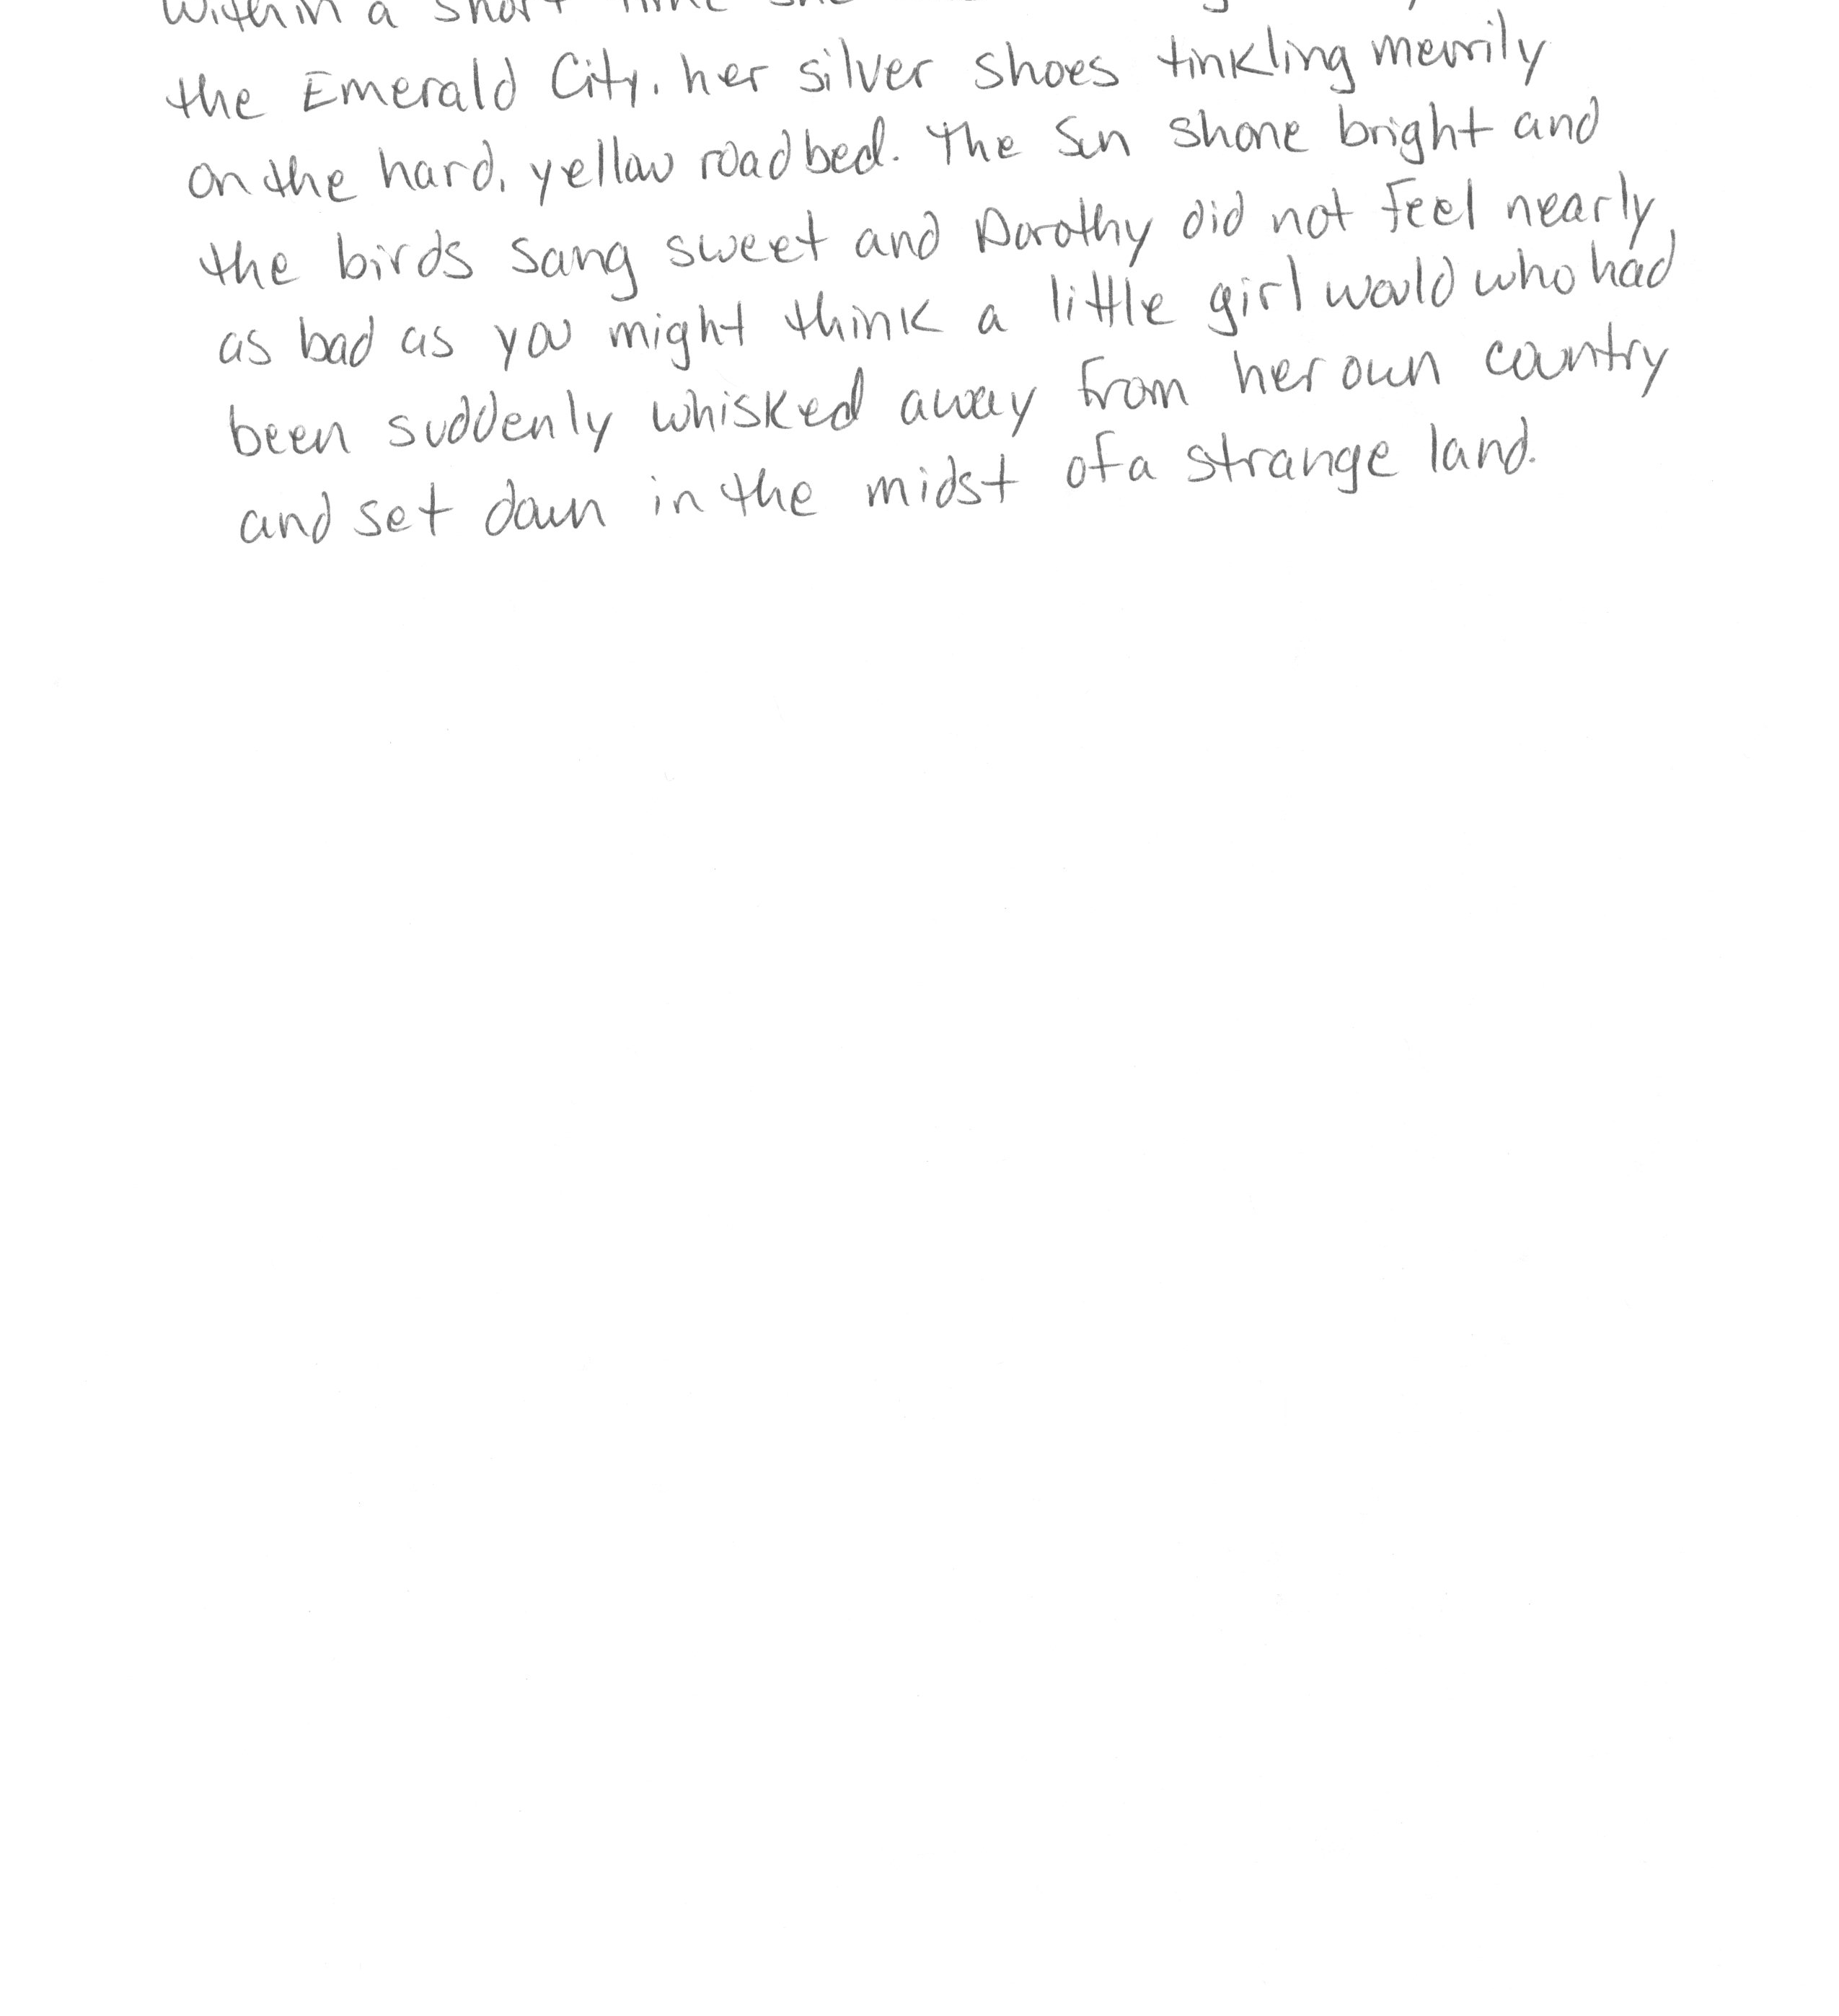 Within a short time she
the Emerald City, her silver shoes tinkling merrily
on the hard, yellow roadbed. The sun shone bright and
the birds sang sweet and Dorothy did not feel nearly
as bad as you might think a little girl would who had
been suddenly whisked away from her own country
and set down in the midst of a strange land.